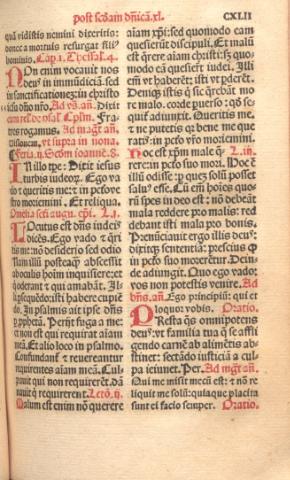 post scđam dñicã.xl.
CXLII
quã vidistis nemini dixeritis:
donec a mortuis resurgat filius
hominis. Cap. i. Thessal. 4.
Non enim vocavit nos
deus in immũdiciã: sed
in sanctificationem: in christo
iesu dño nřo. Ad vs. añ. Dixit
Fra
tres rogamus. Ad magr añ.
Visionem, vt supra in nona.
Feria ij. Secm ioannẽ. 8.
In illo tpe: Dixit iesus
turbis iudeorũ. Ego va
do et queritis me: et in peccato vr̃o
vestro moriemini. Et reliqua.
Omelia scti aug. epi. L. i.
Locutus est dñs iudeis
dicẽs. Ego vado et q̃ri
tis me: nõ desiderio sed odio
Nam illũ postea q̃ abscessit
ab oculis hoim inquisiere: et
q oderant et qui amabãt. Il
li psequẽdo: isti habere cupiẽ
do. In psalmis ait ipse dñs
p prophetã. Perijt fuga a me:
et non est qui requirat aiam
meã. Et alio loco in psalmo.
Confundant et reuereantur
requirentes aiam meã. Cul
pauit qui non requirerẽt. dã
nauit q requirerent. Lectio ij.
Malum est enim nõ querere
aiam xp̃i: sed quomodo eam
quesierũt discipuli. Et malũ
est q̃rere aiam christi: sed quo
modo eã quesierẽt iudei. Illi
em vt haberẽt: isti vt pderẽt.
Deniqz istis q sic q̃rebãt mo
re malo. corde peruerso: qd se
quit adiunxit. Queritis me.
et ne putetis qz bene me que
ratis: in peccato vřo moriemini
Hoc est xpm male q̃ L. iij.
rere: in peccato suo mori. Hoc ẽ
illũ odisse: p quez solũ posset
saluus esse. Cũ em hoies quoz
rũ spes in deo est: nõ debeãt
mala reddere pro malis: red
debant isti mala pro bonis.
Prenunciauit ergo illis deus:
dixitqz sententiã: prescius q
in peccato suo morerẽtur. Dein-
de adiungit. Quo ego vado:
vos non potestis venire. Ad
bñs. añ. Ego principiũ: qui et
loquor vobis. Oratio.
Presta q̃s omnipotens
deus: vt familia tua q̃ se affli
gendo carnẽ ab alimẽtis abs-
tinet: sectãdo iusticiã a cul
pa ieiunet. Per. Ad mgr̃ añ.
Qui me misit mecũ est: et nõ re
liquit me solũ: quia que placita
sunt ei facio semper. Oratio.